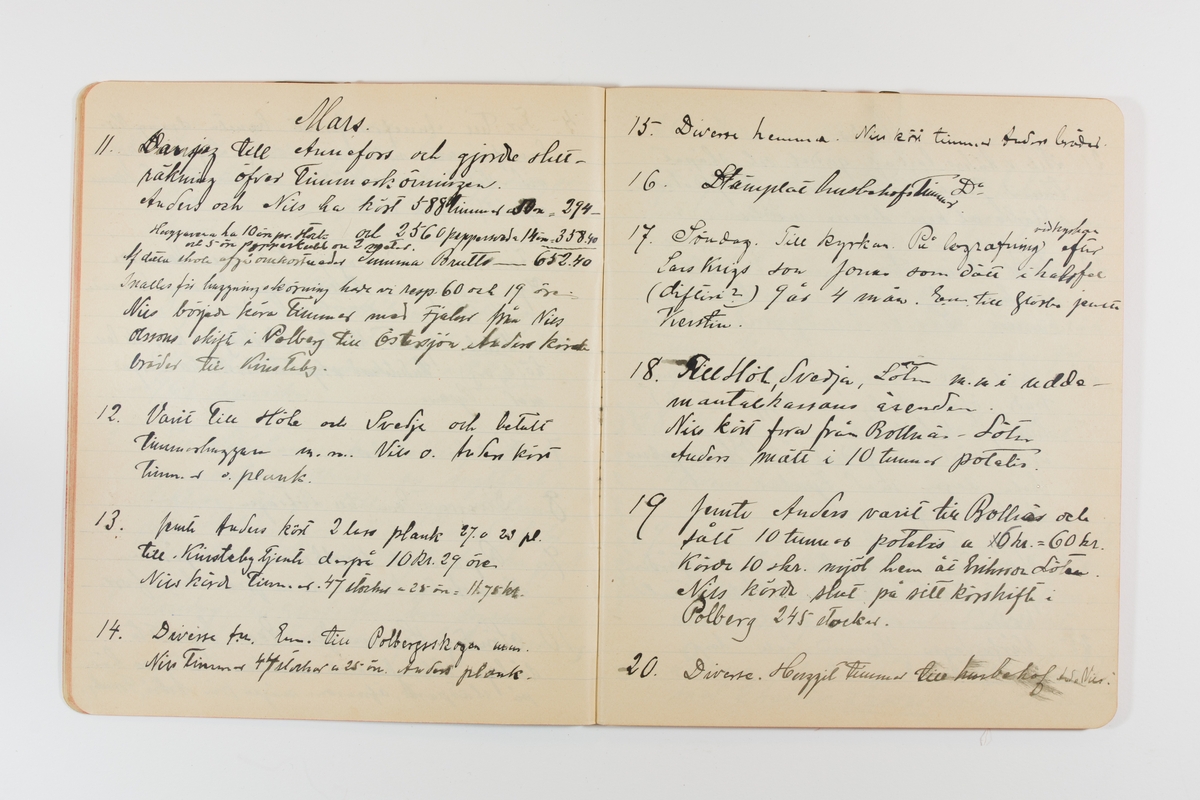 Mars.
11. till Annefors och gjorde slut-
räkning öfver Timmerkörningen.
Anders och Nils ha kört 588 timmer 50 ön = 294 -
Huggarna ha 10 ön pr. Stock och 2560 pappersved a 14 ön 358.40
och 5 ön papperskubb on 2 met.
Af detta skola afgå omkostnader Summa Brutto — 652.40
Inalles för huggning o körning hade vi resp. 60 och 19 öre
Nils började köra Timmer med Fjalar från Nils
Olssons skift i Polberg till Östersjön Anders körde
bräder till Kinstaby.
12. Varit till Höle och Svedje och betalt
Timmerhuggare m.m. Nils o. Anders kört
Timmer o. plank.
13. jemte Anders kört 2 lass plank 27 o 23 pl.
till Kinstaby Tjente derpå 10 kr. 29 öre
Nils körde Timmer. 47 stockar a 25 ön = 11.75 kr.
14. Diverse f.m. Em. till Polbergsskogen m.m.
Nils Timmer 44 stockar a 25 ön. Anders plank.
15. Diverse hemma. Nils kört timmer Anders bräder.
16. Stämplat husbehofstimmer Do
17. Söndag. Till kyrkan. På begrafning efter
Lars Krigs son Jonas som dött i halsfel
(difteri?) 9 år 4 mån. Em. till jemte
Kerstin.
18. Till Höle, Svedja, Löten m.m i udde-
mantalskassans ärenden.
Nils kört foror från Bollnäs - Löten
Anders mätt i 10 tunnor potatis.
19 jemte Anders varit till Bollnäs och
sått 10 tunnor potatis a 6 kr. = 60 kr.
Körde 10 skr. mjöl hem åt Eriksson Löten.
Nils körde slut på sitt körskifte i
Polberg 245 stockar.
20. Diverse. Huggit timmer till husbehof Nils.